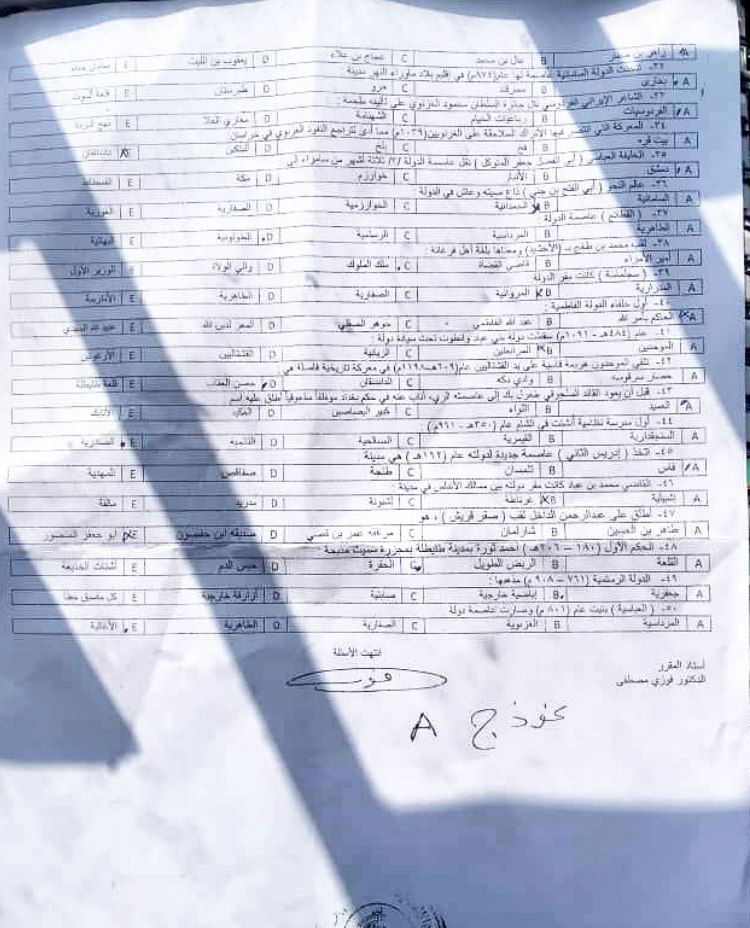 B غال بن محمد C D يعقوب بن الليث E
٣٢- الدولة السامانية عاصمة لها عام (٨٧٤م) في إقليم بلاد ماوراء النهر مدينة
A بخارى B سمرقند C مرو D طبرستان E
٣٣- الشاعر الإيراني الفردوسي نال جائزة السلطان محمود الغزنوي على تأليفه ملحمة :
A الفردوسيات B رباعيات الخيام C الشهنامة D E نهج البردة
٣٤- المعركة التي انتصر فيها الأتراك السلاجقة على الغزنويين (١٠٣٩م) مما أدى لتراجع النفوذ الغزنوي في خراسان
A B فخ C بلخ D E داندانقان
٣٥- الخليفة العباسي ( أبي الفضل جعفر المتوكل ) نقل عاصمة الدولة /٢/ ثلاثة أشهر من سامراء إلى
A دمشق B الأنبار C خوارزم D مكة E
٣٦- عالم النحو ( أبي الفتح بن جني ) ذاع صيته وعاش في الدولة
A السامانية B الحمدانية C الخوارزمية D الصفارية E الغورية
٣٧- ( القطائع ) عاصمة الدولة
A الطاهرية B المرداسية C D الطولونية E
٣٨- لقب محمد بن طغج بـ (الأخشيد) ومعناها بلغة أهل فرغانة
A أمير الأمراء B قاضي القضاة C ملك الملوك D والي الولاة E الوزير الأول
٣٩- ( سجلماسة ) كانت مقر الدولة
A المدرارية B المروانية C الصفارية D الطاهرية E الأدارسة
٤٠- أول خلفاء الدولة الفاطمية :
A الحاكم بأمر الله B عبد الله الفاطمي C جوهر الصقلي D المعز لدين الله E عبيد الله المهدي
٤١- عام (٤٨٤هـ - ١٠٩١م) سقطت دولة بني عباد وانطوت تحت سيادة دولة :
A الموحدين B المرابطين C الزيانية D القشتاليين E
٤٢- تلقى الموحدون هزيمة قاسية على يد القشتاليين عام في معركة تاريخية فاصلة هي
A حصار سرقوسة B وادي لكه C D حصن العقاب E قلعة طليطلة
٤٣- قبل أن يعود القائد السلجوقي طغرل بك إلى عاصمته الري، أناب عنه في حكم بغداد موظفاً سلجوقياً أطلق عليه اسم
A العميد B اللواء C كبير البصاصين D E الأتابك
٤٤- أول مدرسة نظامية أنشئت في الشام عام (٣٥٠هـ - ٩٦١م)
A B القيمرية C الصلاحية D E الصادرية
٤٥- اتخذ ( إدريس الثاني ) عاصمة جديدة لدولته عام هي مدينة
A فاس B تلمسان C طنجة D صفاقص E المهدية
٤٦- القاضي محمد بن عباد كانت مقر دولته بين ممالك الأندلس في مدينة
A إشبيلية B غرناطة C لشبونة D مدريد E مالقة
٤٧- أطلق على عبدالرحمن الداخل لقب ( صقر قريش ) ، هو
A طاهر بن الحسين B شارلمان C D صديقه ابن حفصون E أبو جعفر المنصور
٤٨- الحكم الأول (١٨٠ – ٢٠٦هـ ) أخمد ثورة بمدينة طليطلة بمجزرة سميت مذبحة :
A القلعة B الربض الطويل C الحفرة D حبس الدم E
٤٩- الدولة الرستمية (٧٦١ – ٩٠٨م) مذهبها :
A جعفرية B إباضية خارجية C D أزارقة خارجية E كل ماسبق خطأ
٥٠- ( العباسية ) بنيت عام (٨٠١م) وصارت عاصمة دولة
A المرداسية B الغزنوية C الصفارية D الطاهرية E الأغالبة
انتهت الأسئلة
أستاذ المقرر
الدكتور فوزي مصطفى
نموذج A